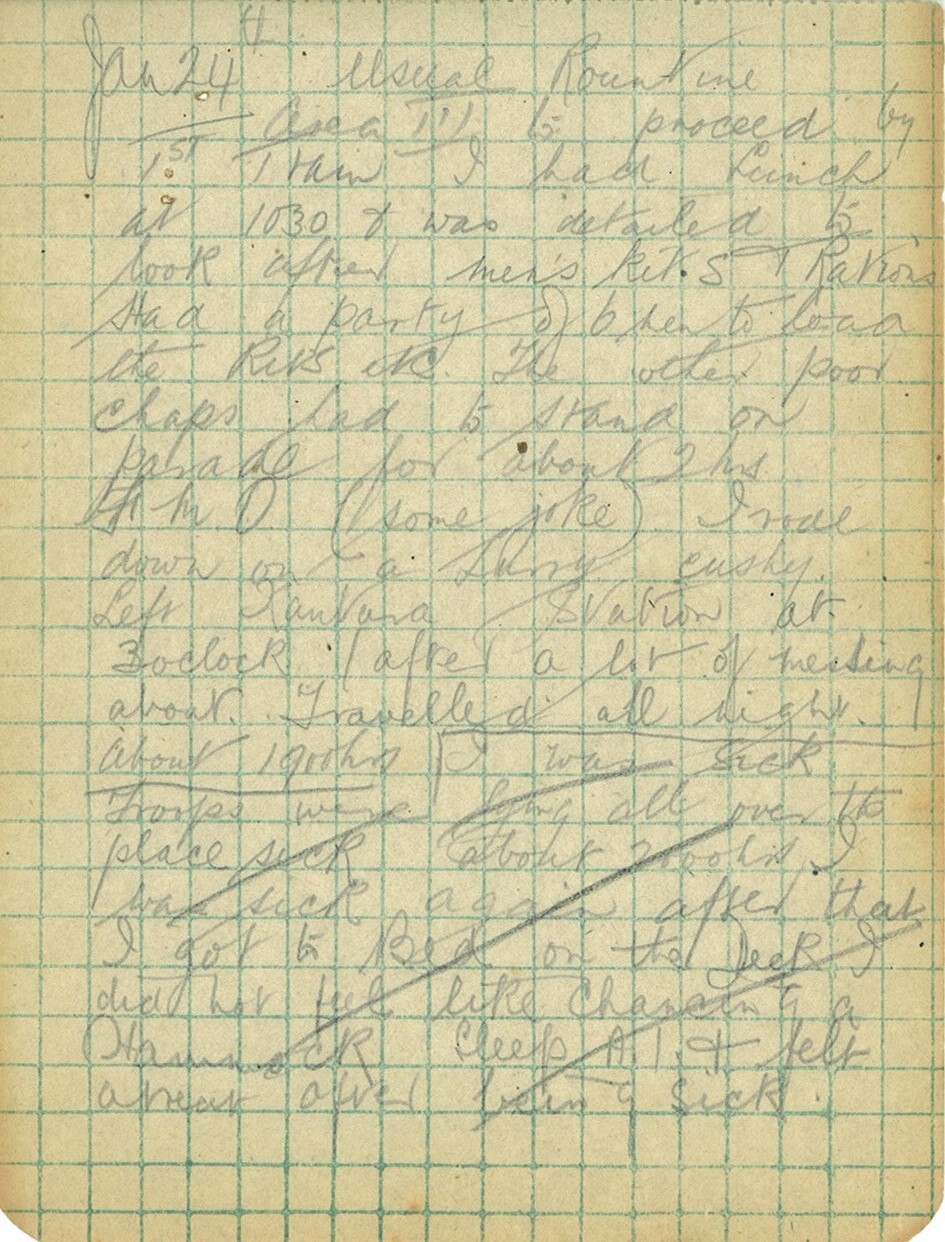 Jan 24th Usual Rountine
Area III to proceed by
1ST Train I had Lunch
at 1030 & was detailed to
look after men's kits & Rations
Had a party of 6 men to load
the Kits etc. The other poor
chaps had to stand on
parade for about 2 hrs
F M O (some joke) I rode
down on a Lurry cushy.
Left Kantara Station at
3oclock (after a lot of messing
about. Travelled all night.
About 1900hrs I was sick
Troops were lying all over the
place sick about 2000hrs I
was sick again after that
I got to Bed on the Deck I
did not feel like chancing a
Hammock Sleep A.1. & felt
atreat after being sick.